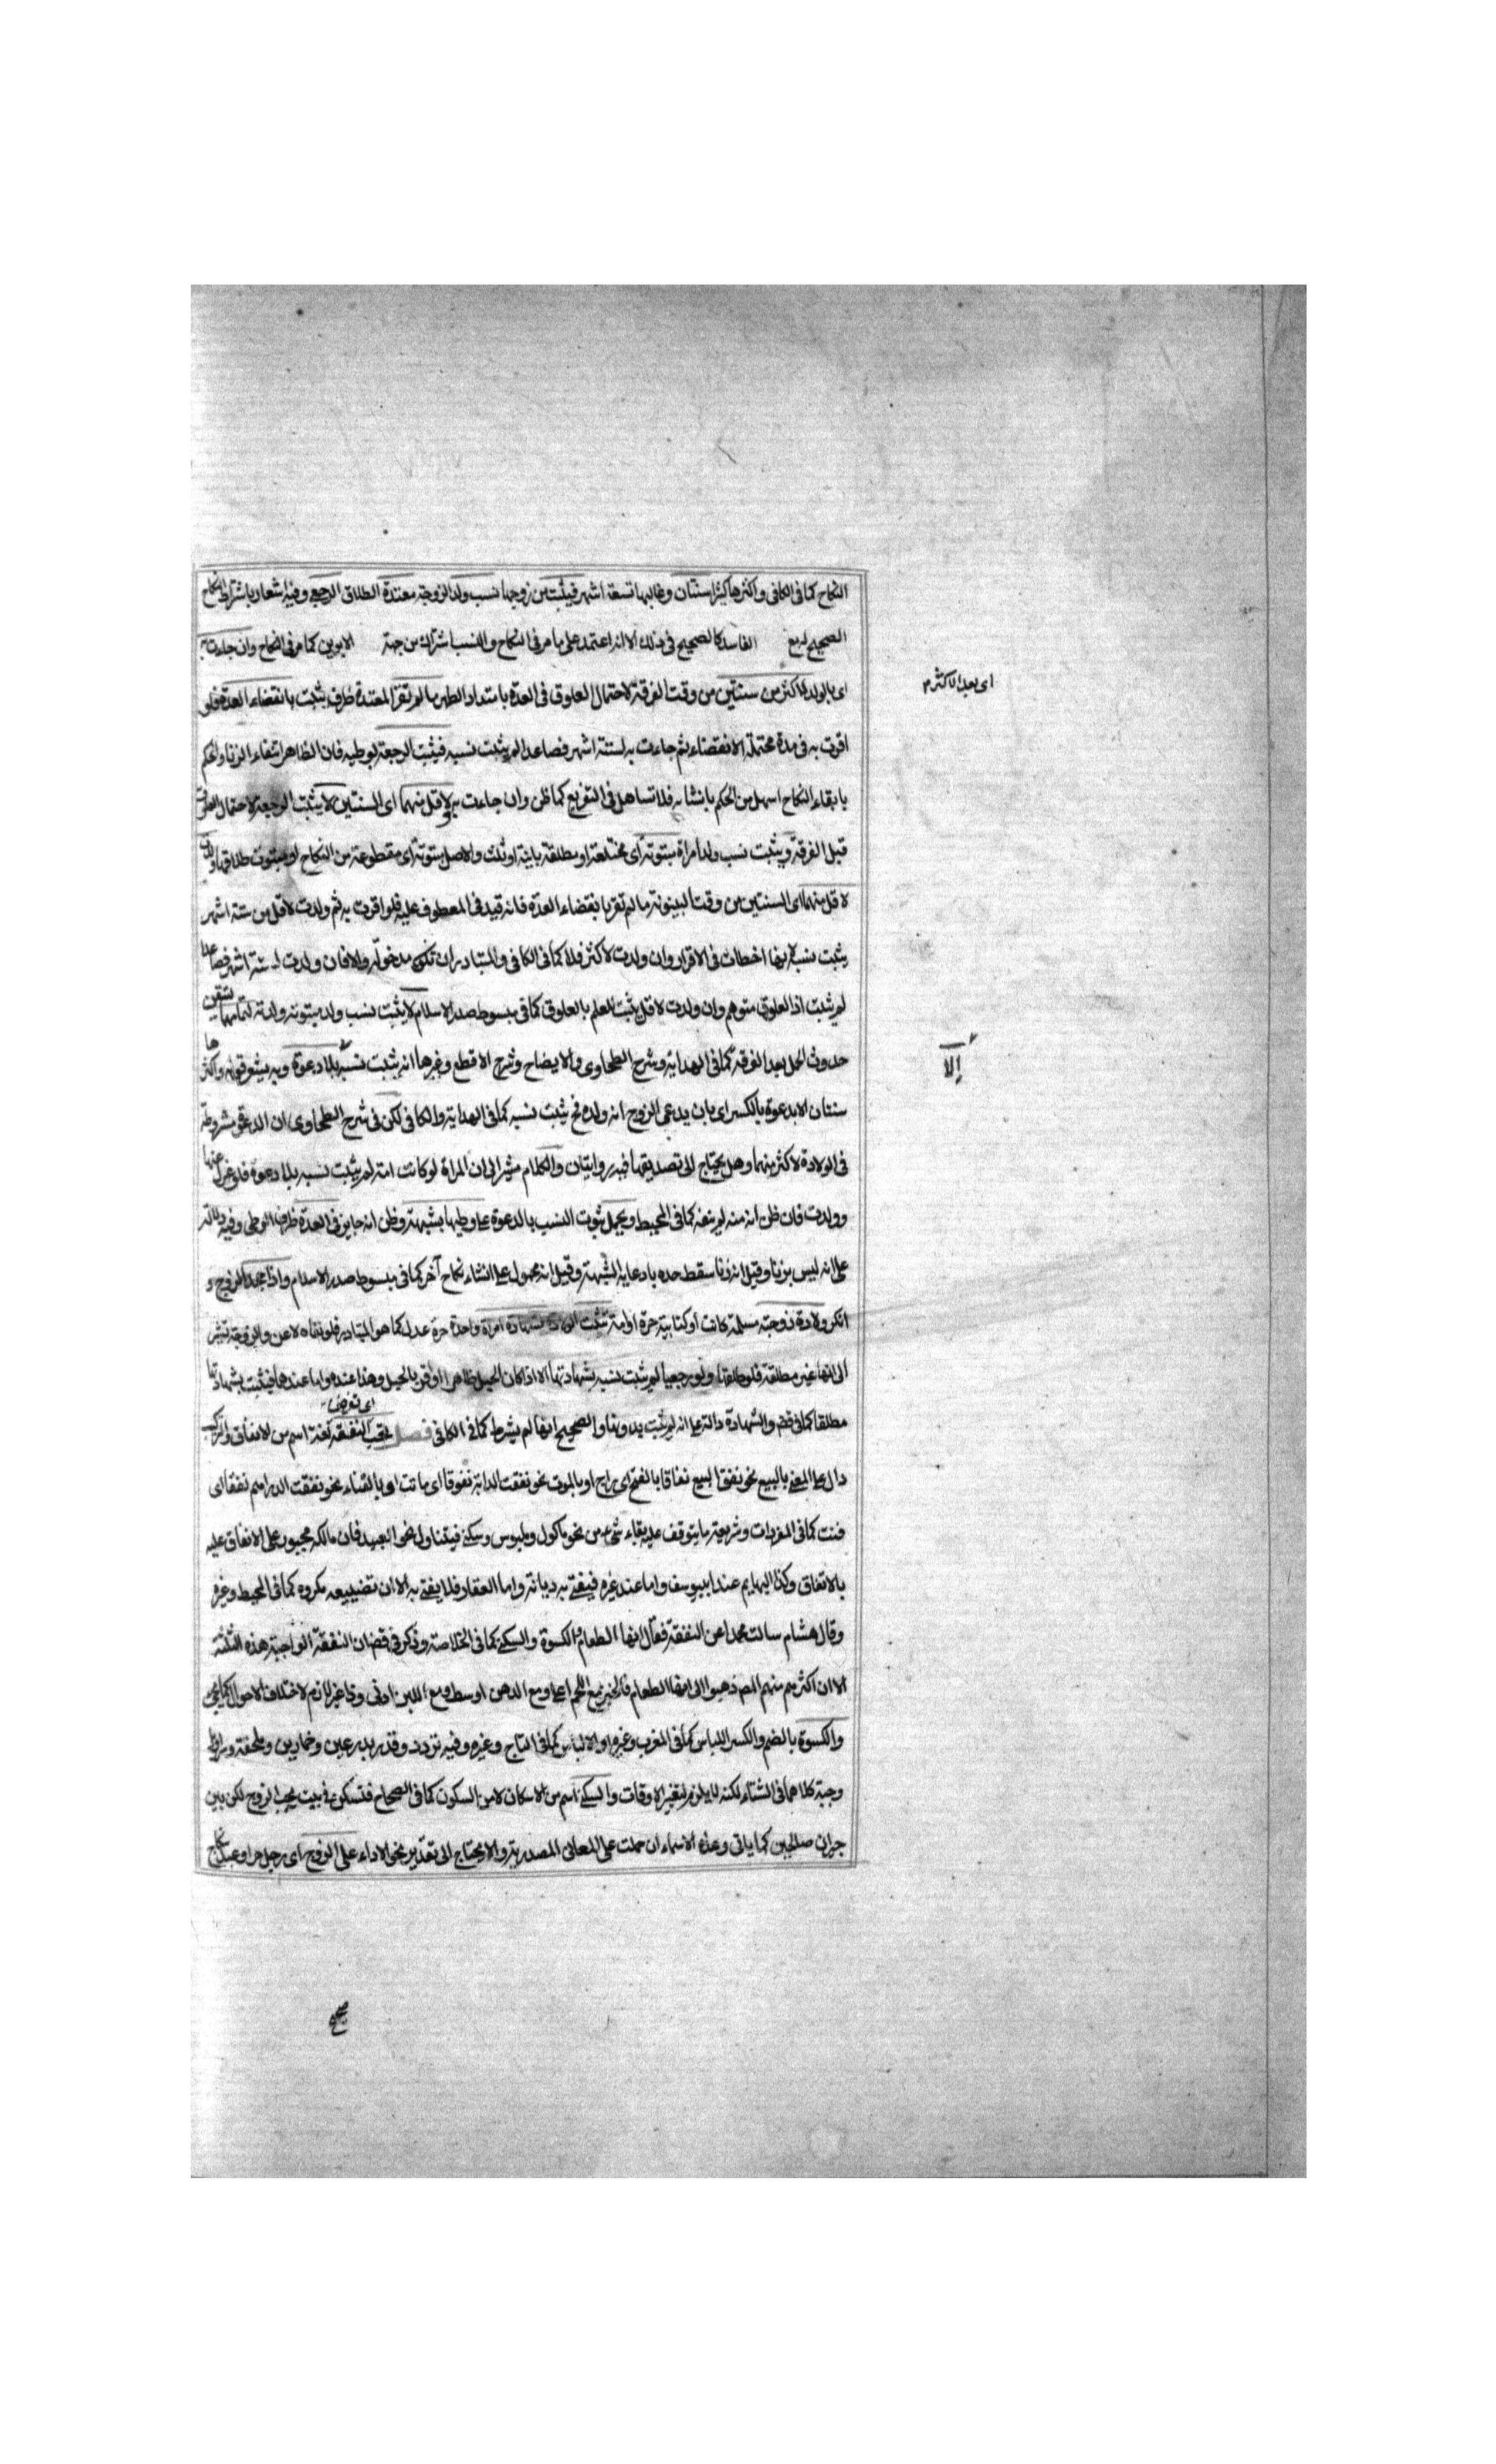 النكاح كما فى الكافى واكثرها سنتان وغالبها تسعة اشهر فيثبت من زوجها نسب ولد الزوجة معتدة الطلاق الرجعى وفيه اشعار باشتراط النكاح
الصحيح الفاسد كالصحيح فى ذلك الا انه اعتمد على ما مر فى النكاح والنسب اشتراك من جهة الابوين كما مر فى النكاح وان جاءت به
اى بالولد لاكثر من سنتين من وقت الفرقة لاحتمال العلوق فى العدة بامتداد الطهر ما لم تقر المعتدة ظرف يثبت بانقضاء العدة فلو
اى بعد الاكثر م
اقرت به فى مدة محتملة الانقضاء ثم جاءت به لستة اشهر فصاعدا لم يثبت نسبه فيثبت الرجعة لوطيه فان الظاهر انتفاء الزنا والحكم
بابقاء النكاح اسهل من الحكم بانشائه فلا تساهل فى التفريع كما ظن وان جاءت به لاقل منهما اى السنتين لا يثبت الرجعة لاحتمال العلوق
قبل الفرقة ويثبت نسب ولد امراة مبتوتة اى مختلعة او مطلقة باينة او ثلث والاصل مبتوتة اى مقطوعة من النكاح او مبتوت طلاقها ولدت
لاقل منهما اى السنتين من وقت البينونة ما لم تقر بانقضاء العدة فانه قيد فى المعطوف عليه فلو اقرت به ثم ولدت لاقل من ستة اشهر
يثبت نسبه لانها اخطات فى الاقرار وان ولدت لاكثر فلا كما فى الكافى والمتبادر ان تكون مدخولة والا فان ولدت لستة اشهر فصاعدا
لم يثبت اذ العلوق متوهم وان ولدت لاقل يثبت للعلم بالعلوق كما فى مبسوط صدر الاسلام لا يثبت نسب ولد مبتوتة ولدته لتمامهما لتيقن
حدوث الحمل بعد الفرقة كما فى الهداية وشرح الطحاوى والايضاح وشرح الاقطع وغيرها انه يثبت نسبه بلا دعوة وبه يشعر قوله واكثرها
إلا
سنتان الا بدعوة بالكسر اى بان يدعى الزوج انه ولده فح يثبت نسبه كما فى الهداية والكافى لكن فى شرح الطحاوى ان الدعوة مشروطة
فى الولادة لاكثر منهما وهل يحتاج الى تصديقها فيه روايتان والكلام مشير الى ان المراة لو كانت امة لم يثبت نسبه بلا دعوة فلو عزل عنها
وولدت فان ظن انه منه لم ينفه كما فى المحيط ويحمل ثبوت النسب بالدعوة على وطيها بشبهة وظن انه جايز فى العدة ظرف الوطى وفيه دلالة
على انه ليس بزنا وقيل انه زنا سقط حده بادعاية الشبهة وقيل انه محمول على انشاء نكاح آخر كما فى مبسوط صدر الاسلام واذا جحد الزوج و
انكر ولادة زوجته مسلمة كانت او كتابية حرة او امة تثبت الولادة بشهادة امراة واحدة حرة عدل كما هو المتبادر فلو نفاه لاعن والزوجة تشير
الى انها غير مطلقة فلو طلقها ولو رجعيا لم يثبت نسبه بشهادتها الا اذا كان الحبل ظاهرا او اقر بالحبل وهذا عنده واما عندهما فيثبت بشهادتها
مطلقا كما فى قض والشهادة دالة على انه لم يثبت بدونها والصحيح انها لم يشرط كما فى الكافى فصل يجب النفقة لغة اسم من الانفاق والتركيب
اى تفرض
دال على المضى بالبيع نحو نفق البيع نفاقا بالفتح اى راج او بالموت نحو نفقت الدابة نفوقا اى ماتت او بالفناء نحو نفقت الدراهم نفقا اى
فنت كما فى المفردات وشريعة ما يتوقف عليه بقاء شئ من نحو ماكول وملبوس وسكنى فيتناول نحو العبيد فان مالكه مجبور على الانفاق عليه
بالاتفاق وكذا البهايم عند ابيوسف واما عند غيره فيفتى به ديانة واما العقار فلا يفتى به الا ان تضييعه مكروه كما فى المحيط وغيره
وقال هشام سالت محمدا عن النفقة فقال انها الطعام والكسوة والسكنى كما فى الخلاصة وذكر فى قض ان النفقة الواجبة هذه الثلثة
الا ان اكثرهم منهم المص ذهبوا الى انها الطعام فالخبز مع اللحم اعلى ومع الدهن اوسط ومع اللبن ادنى وذا غير لازم لاختلاف الاحوال كما
والكسوة بالضم والكسر اللباس كما فى المغرب وغيره او الالباس كما فى التاج وغيره وفيه تردد وقدر بدرعين وخمارين وملحفة
وجبة كلاهما فى الشتاء لكنه لا يلزم لتغير الاوقات والسكنى اسم من الاسكان لا من السكون كما فى الصحاح فتسكن فى بيت يجب الزوج لكن بين
جيران صالحين كما ياتى وهذه الاسماء ان حملت على المعانى المصدرية والا يحتاج الى تقدير نحو الاداء على الزوج اى رجل حر او عبد
صحيح